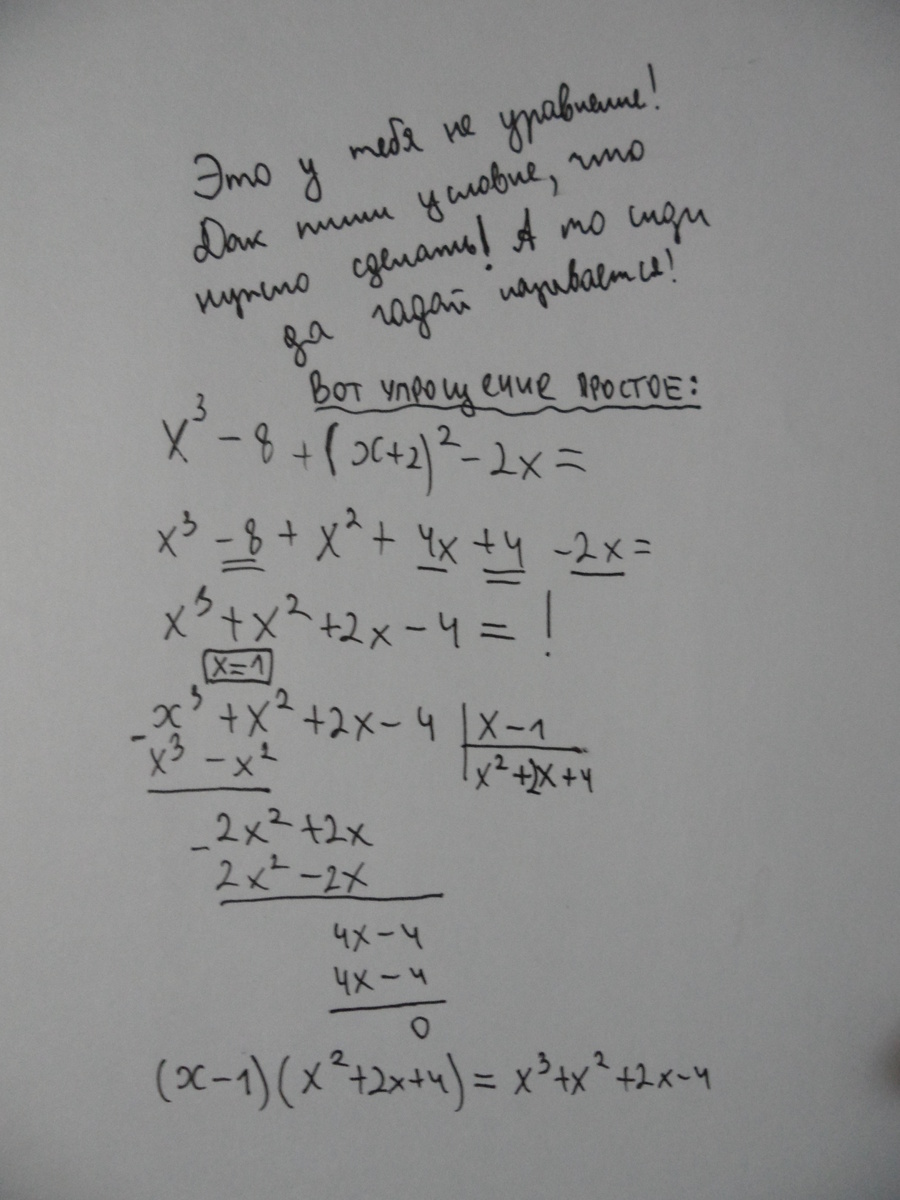 Это у тебя не уравнение!
Дак пиши условие, что
нужно сделать! А то сиди
да гадай называется!
Вот упрощение простое:
x³ - 8 + (x+2)² - 2x =
x³ - 8 + x² + 4x + 4 - 2x =
x³ + x² + 2x - 4 = !
x=1
- x³ + x² + 2x - 4 | x - 1
x³ - x² | x² + 2x + 4
- 2x² + 2x
2x² - 2x
4x - 4
4x - 4
0
(x-1)(x²+2x+4) = x³+x²+2x-4